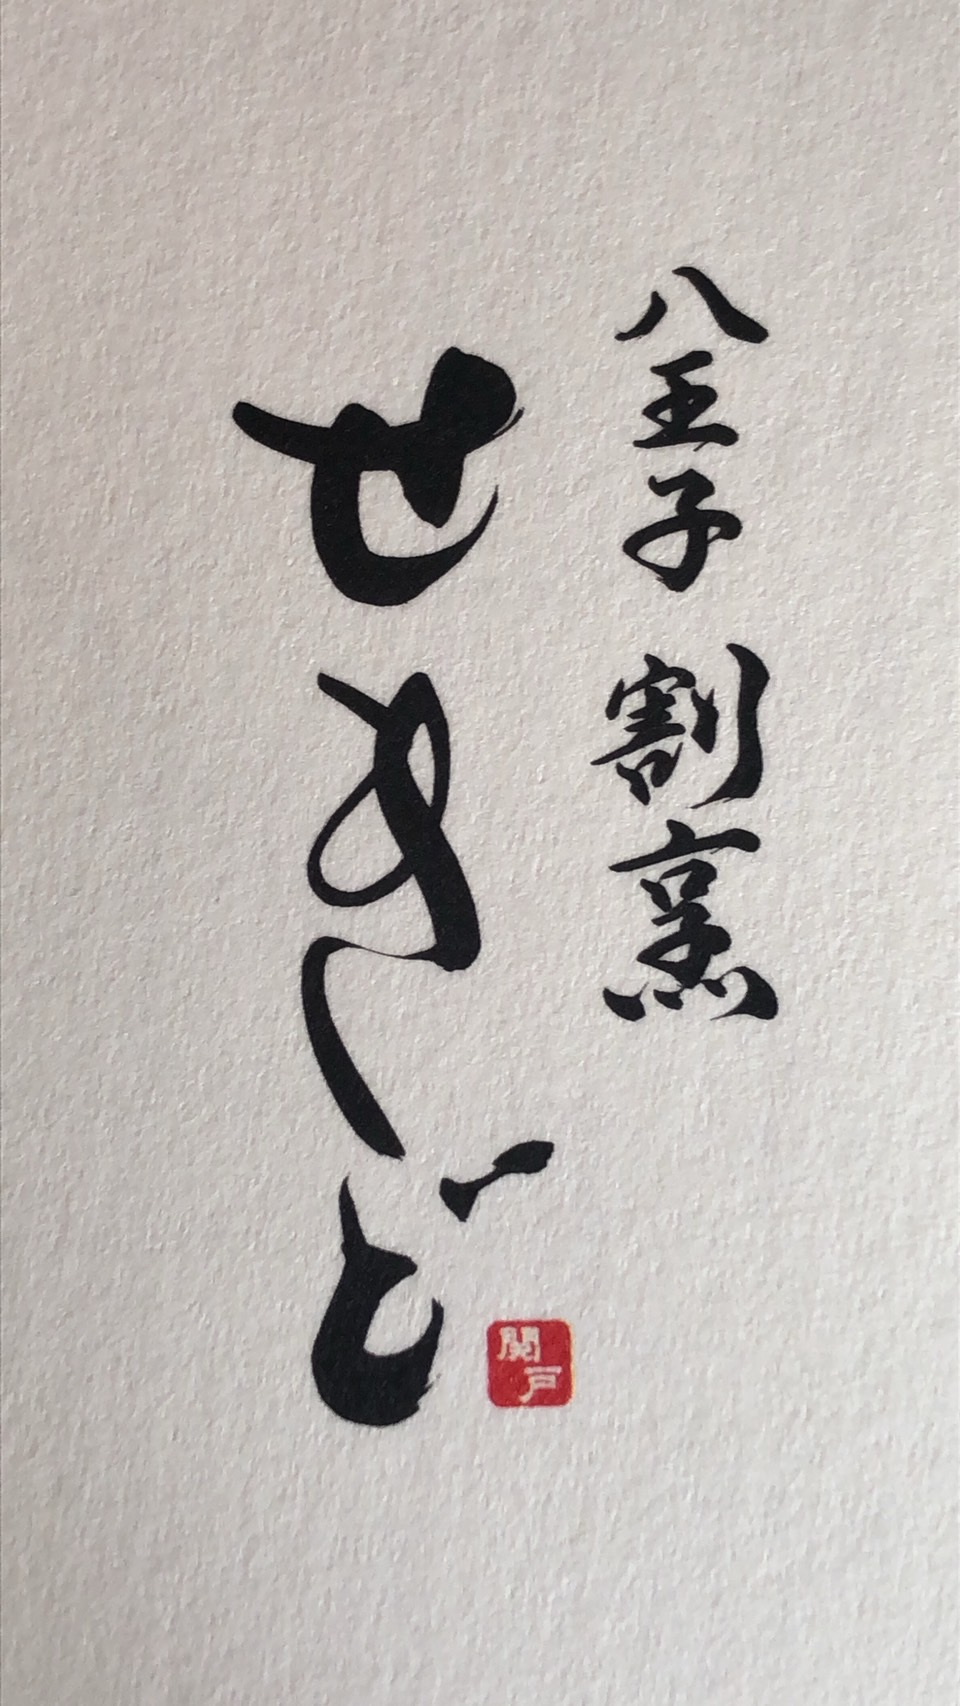 八王子 割烹
せきど
関戸